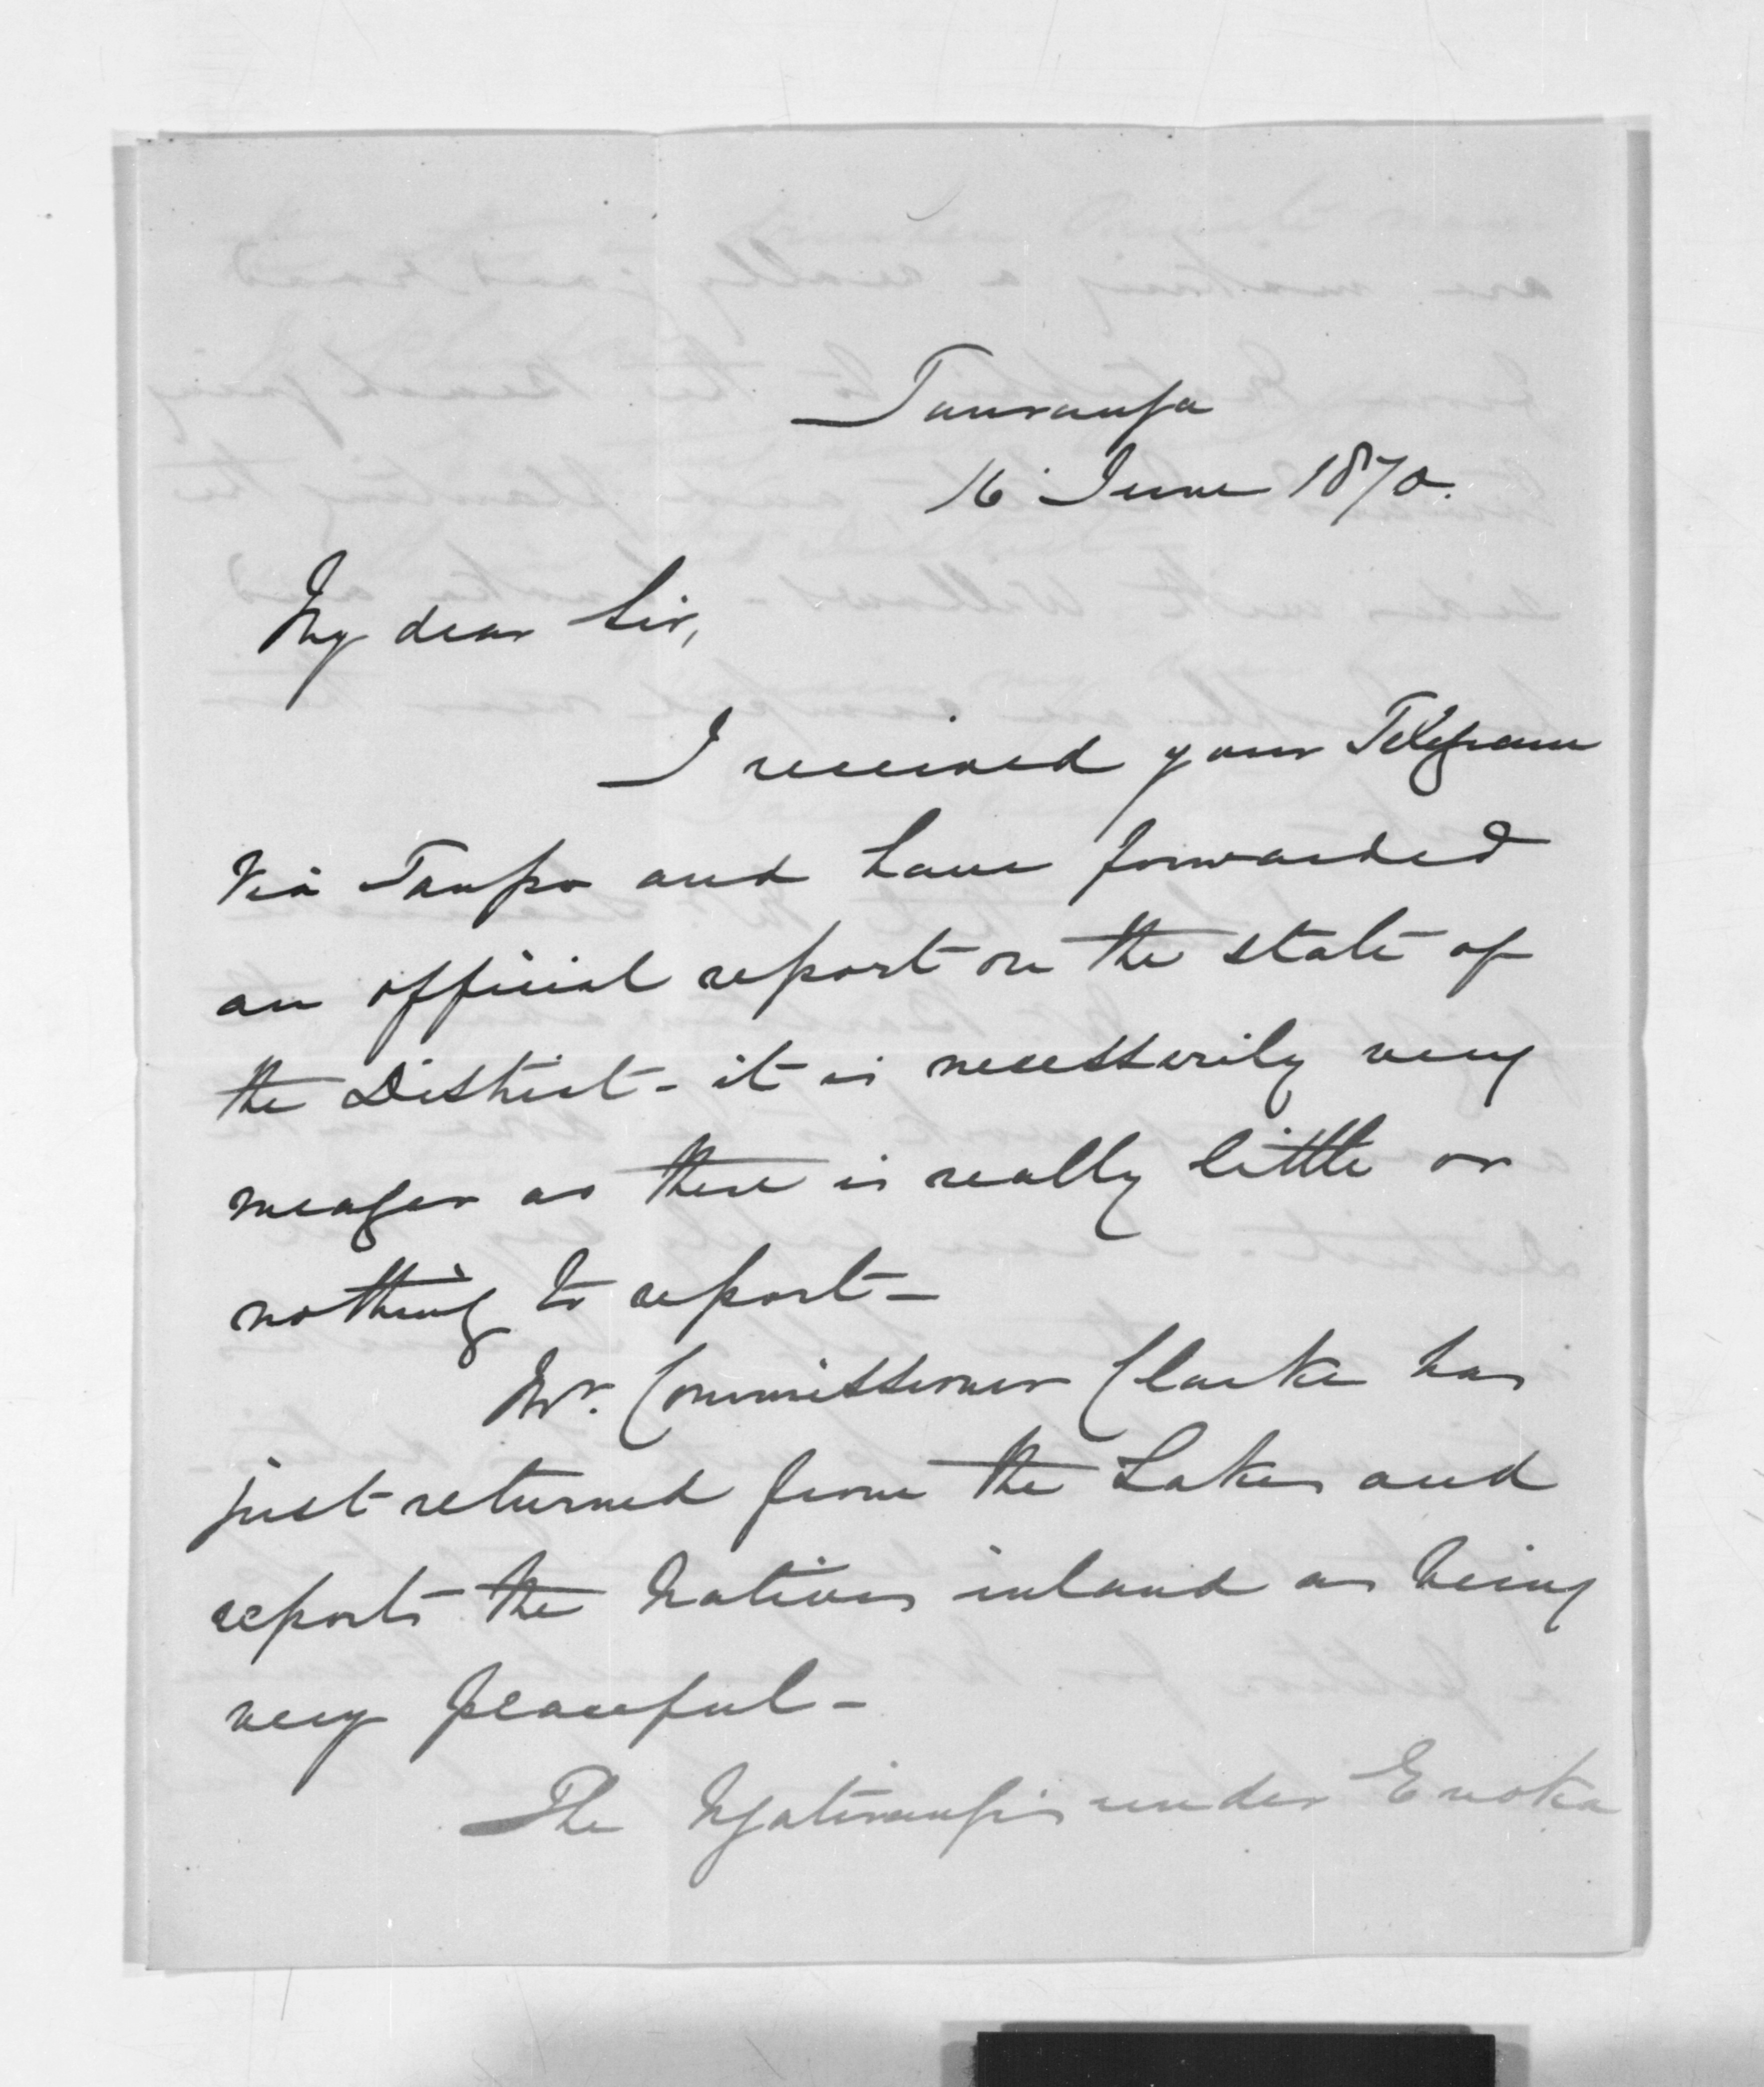 Tauranga
16 June 1870.
My dear Sir,
I received your Telegram
via Taupo and have forwarded
an official report on the state of
the District - it is necessarily very
meager as there is really little or
nothing to report -
Mr. Commissioner Clarke has
just returned from the Lakes and
reports the Natives inland as being
very peaceful -
The Ngatirangi under Enoka